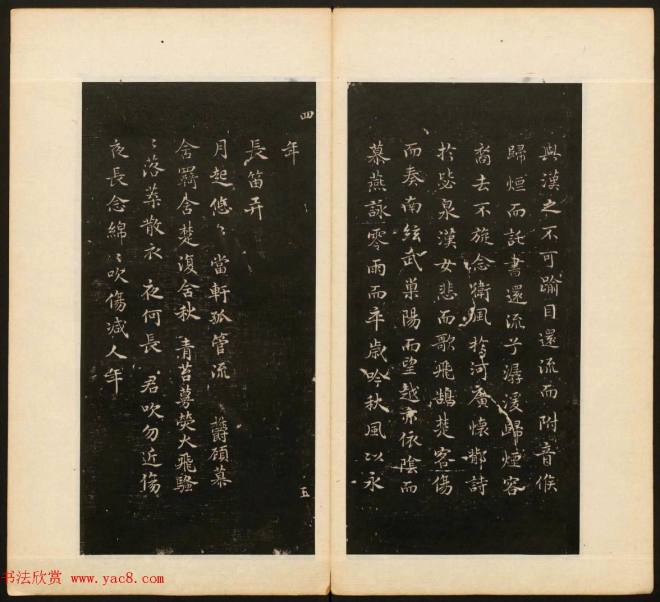 與漢之不可踰目還流而附音候
歸煙而託書還流兮潺湲歸煙容
裔去不旋念衛風於河廣懷鄁詩
於毖泉漢女悲而歌飛鵠楚客傷
而奏南絃武巢陽而望越亦依陰而
慕燕詠零雨而卒歲吟秋風以永
四
年
長笛弄
月起悠〻當軒孤管流 欝顧慕
含羈含楚復含秋 青苔蔓熒火飛騷
〻落葉散衣 夜何長 君吹勿近傷
夜長念綿〻吹傷減人年
五
书法欣赏 www.yac8.com